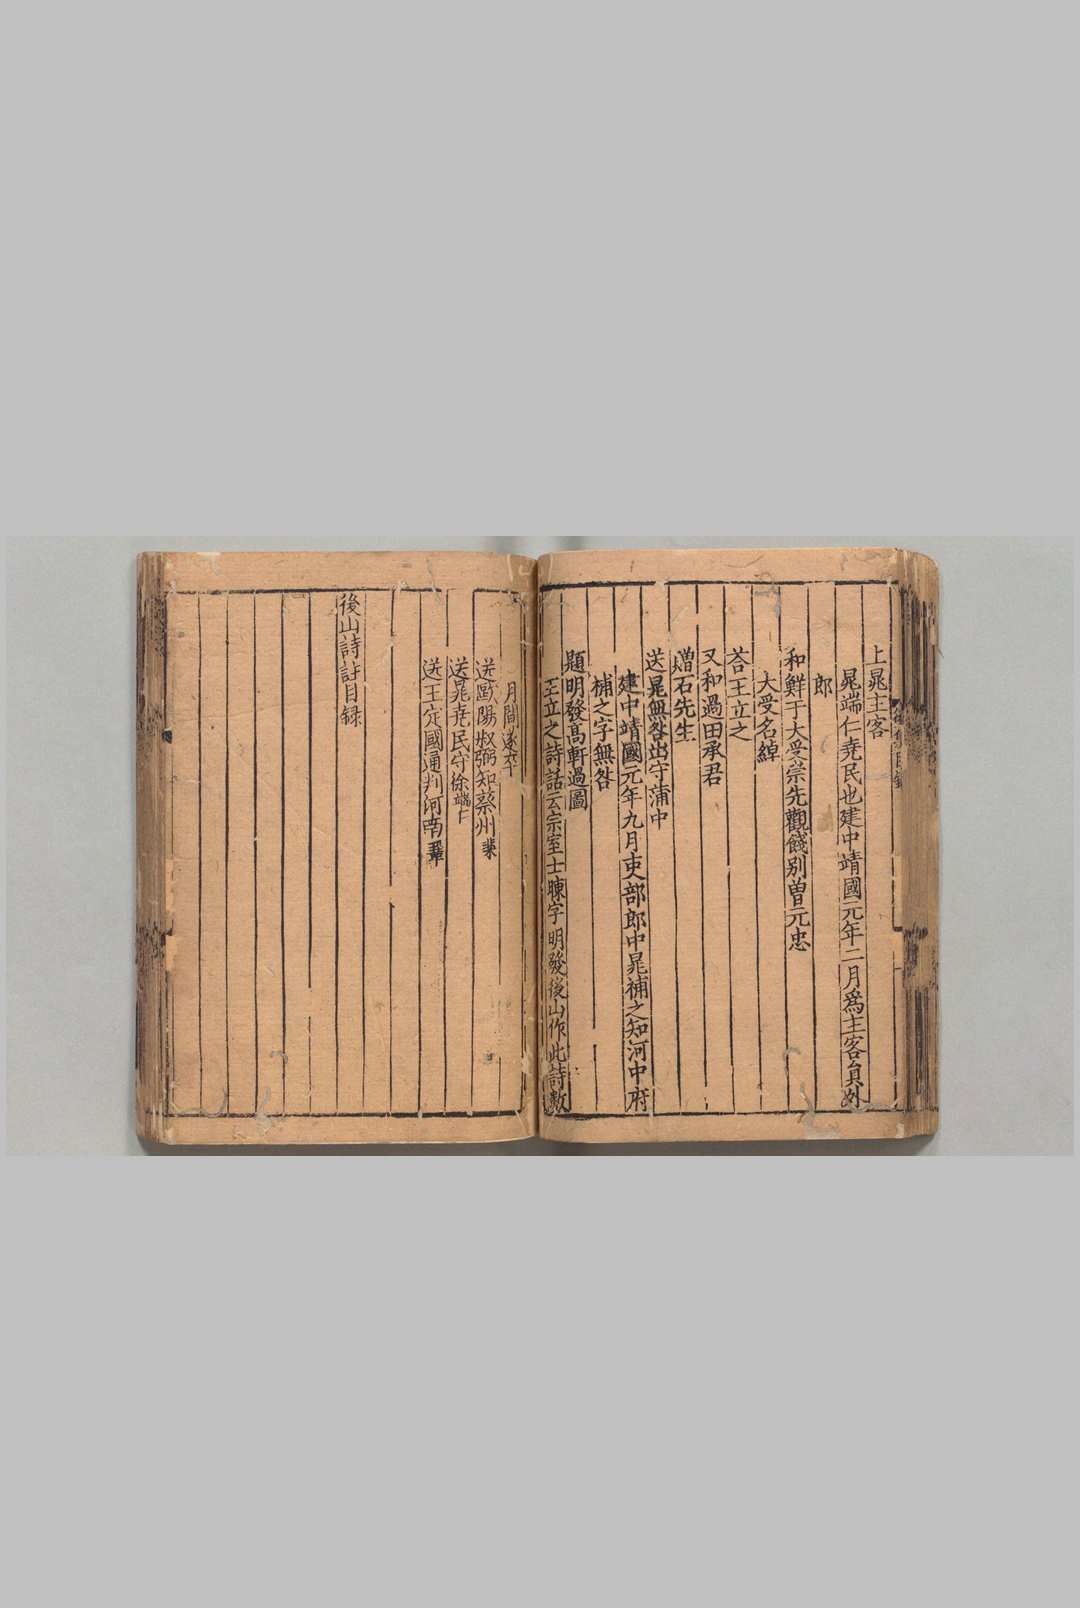 上晁主客
晁端仁堯民也建中靖國元年二月爲主客負外
郎
和鮮于大受崇先觀餞別曽元忠
大受名綽
荅王立之
又和過田承君
贈石先生
送晁無咎出守蒲中
建中靖國元年九月吏部郎中晁補之知河中府
補之字無咎
題明發高軒過圖
王立之詩話云宗室士暕字明發後山作此詩數
月間遂卒
送歐陽叔弼知蔡州棐
送晁堯民守徐端仁
送王定國通判河南鞏
後山詩註目録